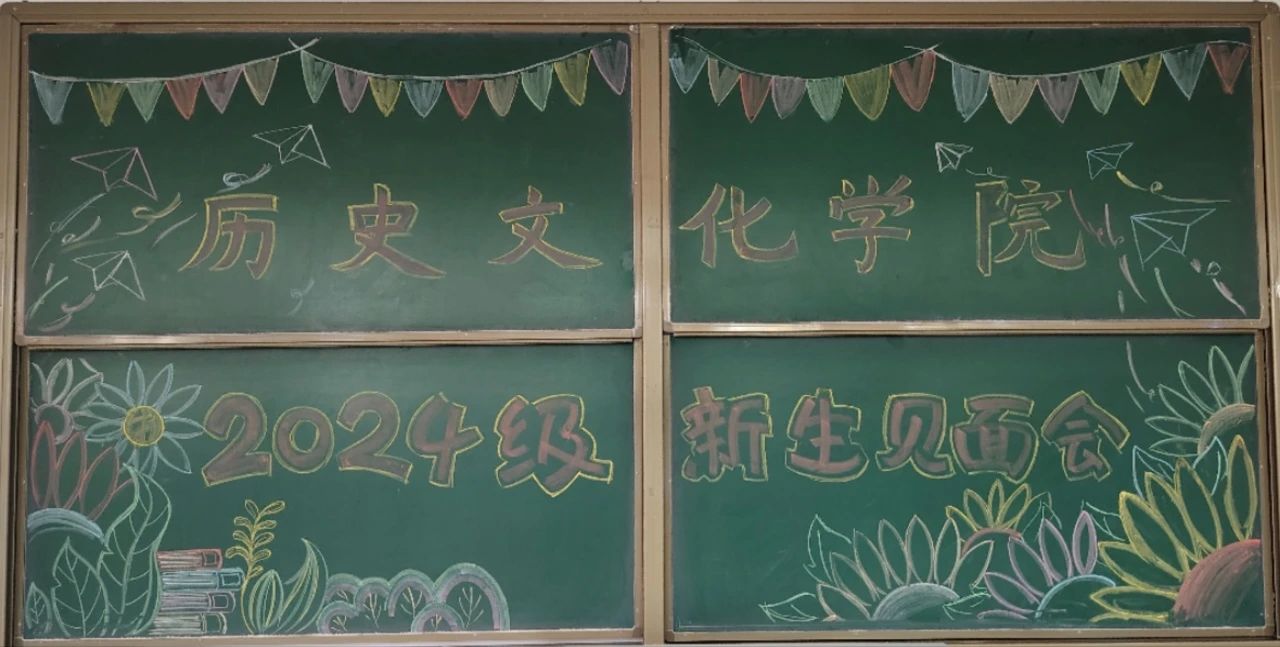 历史文化学院
2024级新生见面会